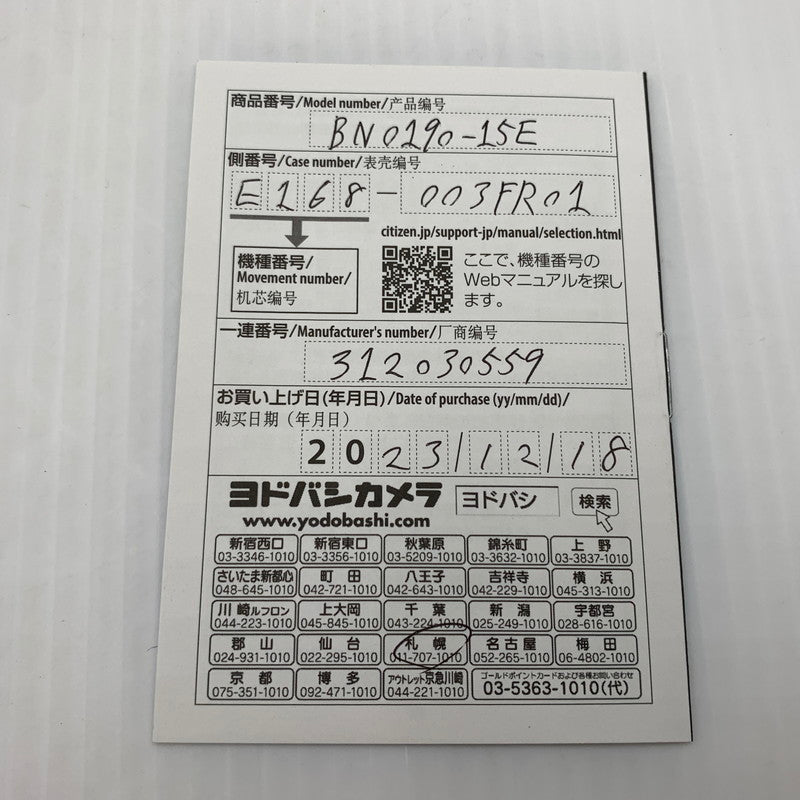 商品番号/Model number/产品编号
BN0190-15E
側番号/Case number/表壳编号
E168-003FR01
citizen.jp/support-jp/manual/selection.html
機種番号/
Movement number/
机芯编号
ここで、機種番号の
Webマニュアルを探し
ます。
一連番号/Manufacturer's number/厂商编号
312030559
お買い上げ日(年月日)/Date of purchase (yy/mm/dd)/
购买日期（年月日）
2023/12/18
ヨドバシカメラ ヨドバシ 検索
www.yodobashi.com
新宿西口 新宿東口 秋葉原 錦糸町 上野
03-3346-1010 03-3356-1010 03-5209-1010 03-3632-1010 03-3837-1010
さいたま新都心 町田 八王子 吉祥寺 横浜
048-645-1010 042-721-1010 042-643-1010 042-229-1010 045-313-1010
川崎ルフロン 上大岡 千葉 新潟 宇都宮
044-223-1010 045-845-1010 043-224-1010 025-249-1010 028-616-1010
郡山 仙台 札幌 名古屋 梅田
024-931-1010 022-295-1010 011-707-1010 052-265-1010 06-4802-1010
京都 博多 アウトレット京急川崎 ゴールドポイントカードおよび各種お問い合わせ
075-351-1010 092-471-1010 044-221-1010 03-5363-1010(代)